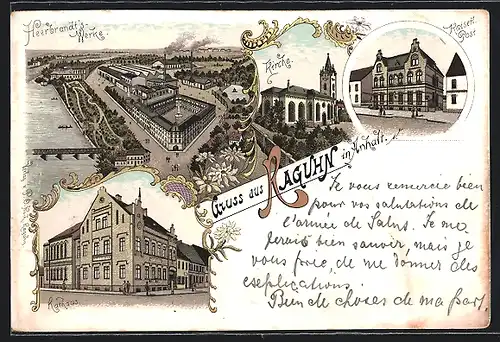 Heerbrandt's
Werke.
Kirche.
Kaiserl.
Post
Gruss aus RAGUHN
in Anhalt.
Rathaus
Je vous remercie bien
pour vos salutations de
l'armée de Salns. Je me
ferais bien savoir, mais je
vous prie, de me donner des
cseplications.
Bien de choses de ma part.